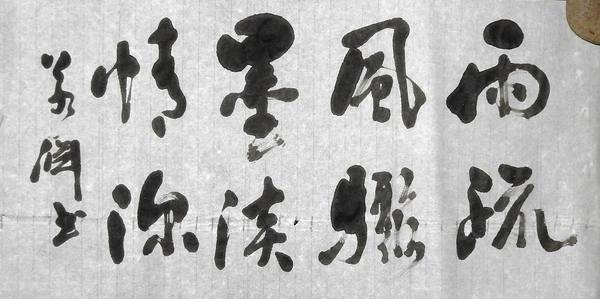 雨疏
風驟
墨淡
情深
书